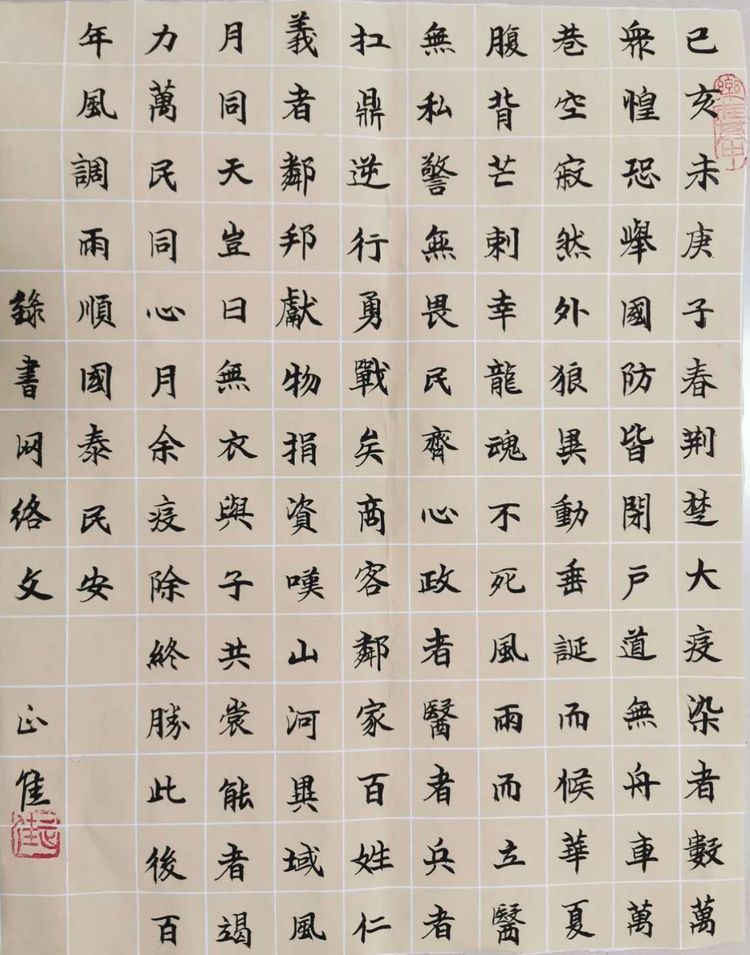 己亥末庚子春荆楚大疫染者數萬
衆惶恐舉國防皆閉戶道無舟車萬
巷空寂然外狼異動垂誕而候華夏
腹背芒刺幸龍魂不死風雨而立醫
無私警無畏民齊心政者醫者兵者
扛鼎逆行勇戰矣商客鄰家百姓仁
義者鄰邦獻物捐資嘆山河異域風
月同天豈曰無衣與子共裳能者竭
力萬民同心月余疫除終勝此後百
年風調雨順國泰民安
錄書网络文 正佳
正佳